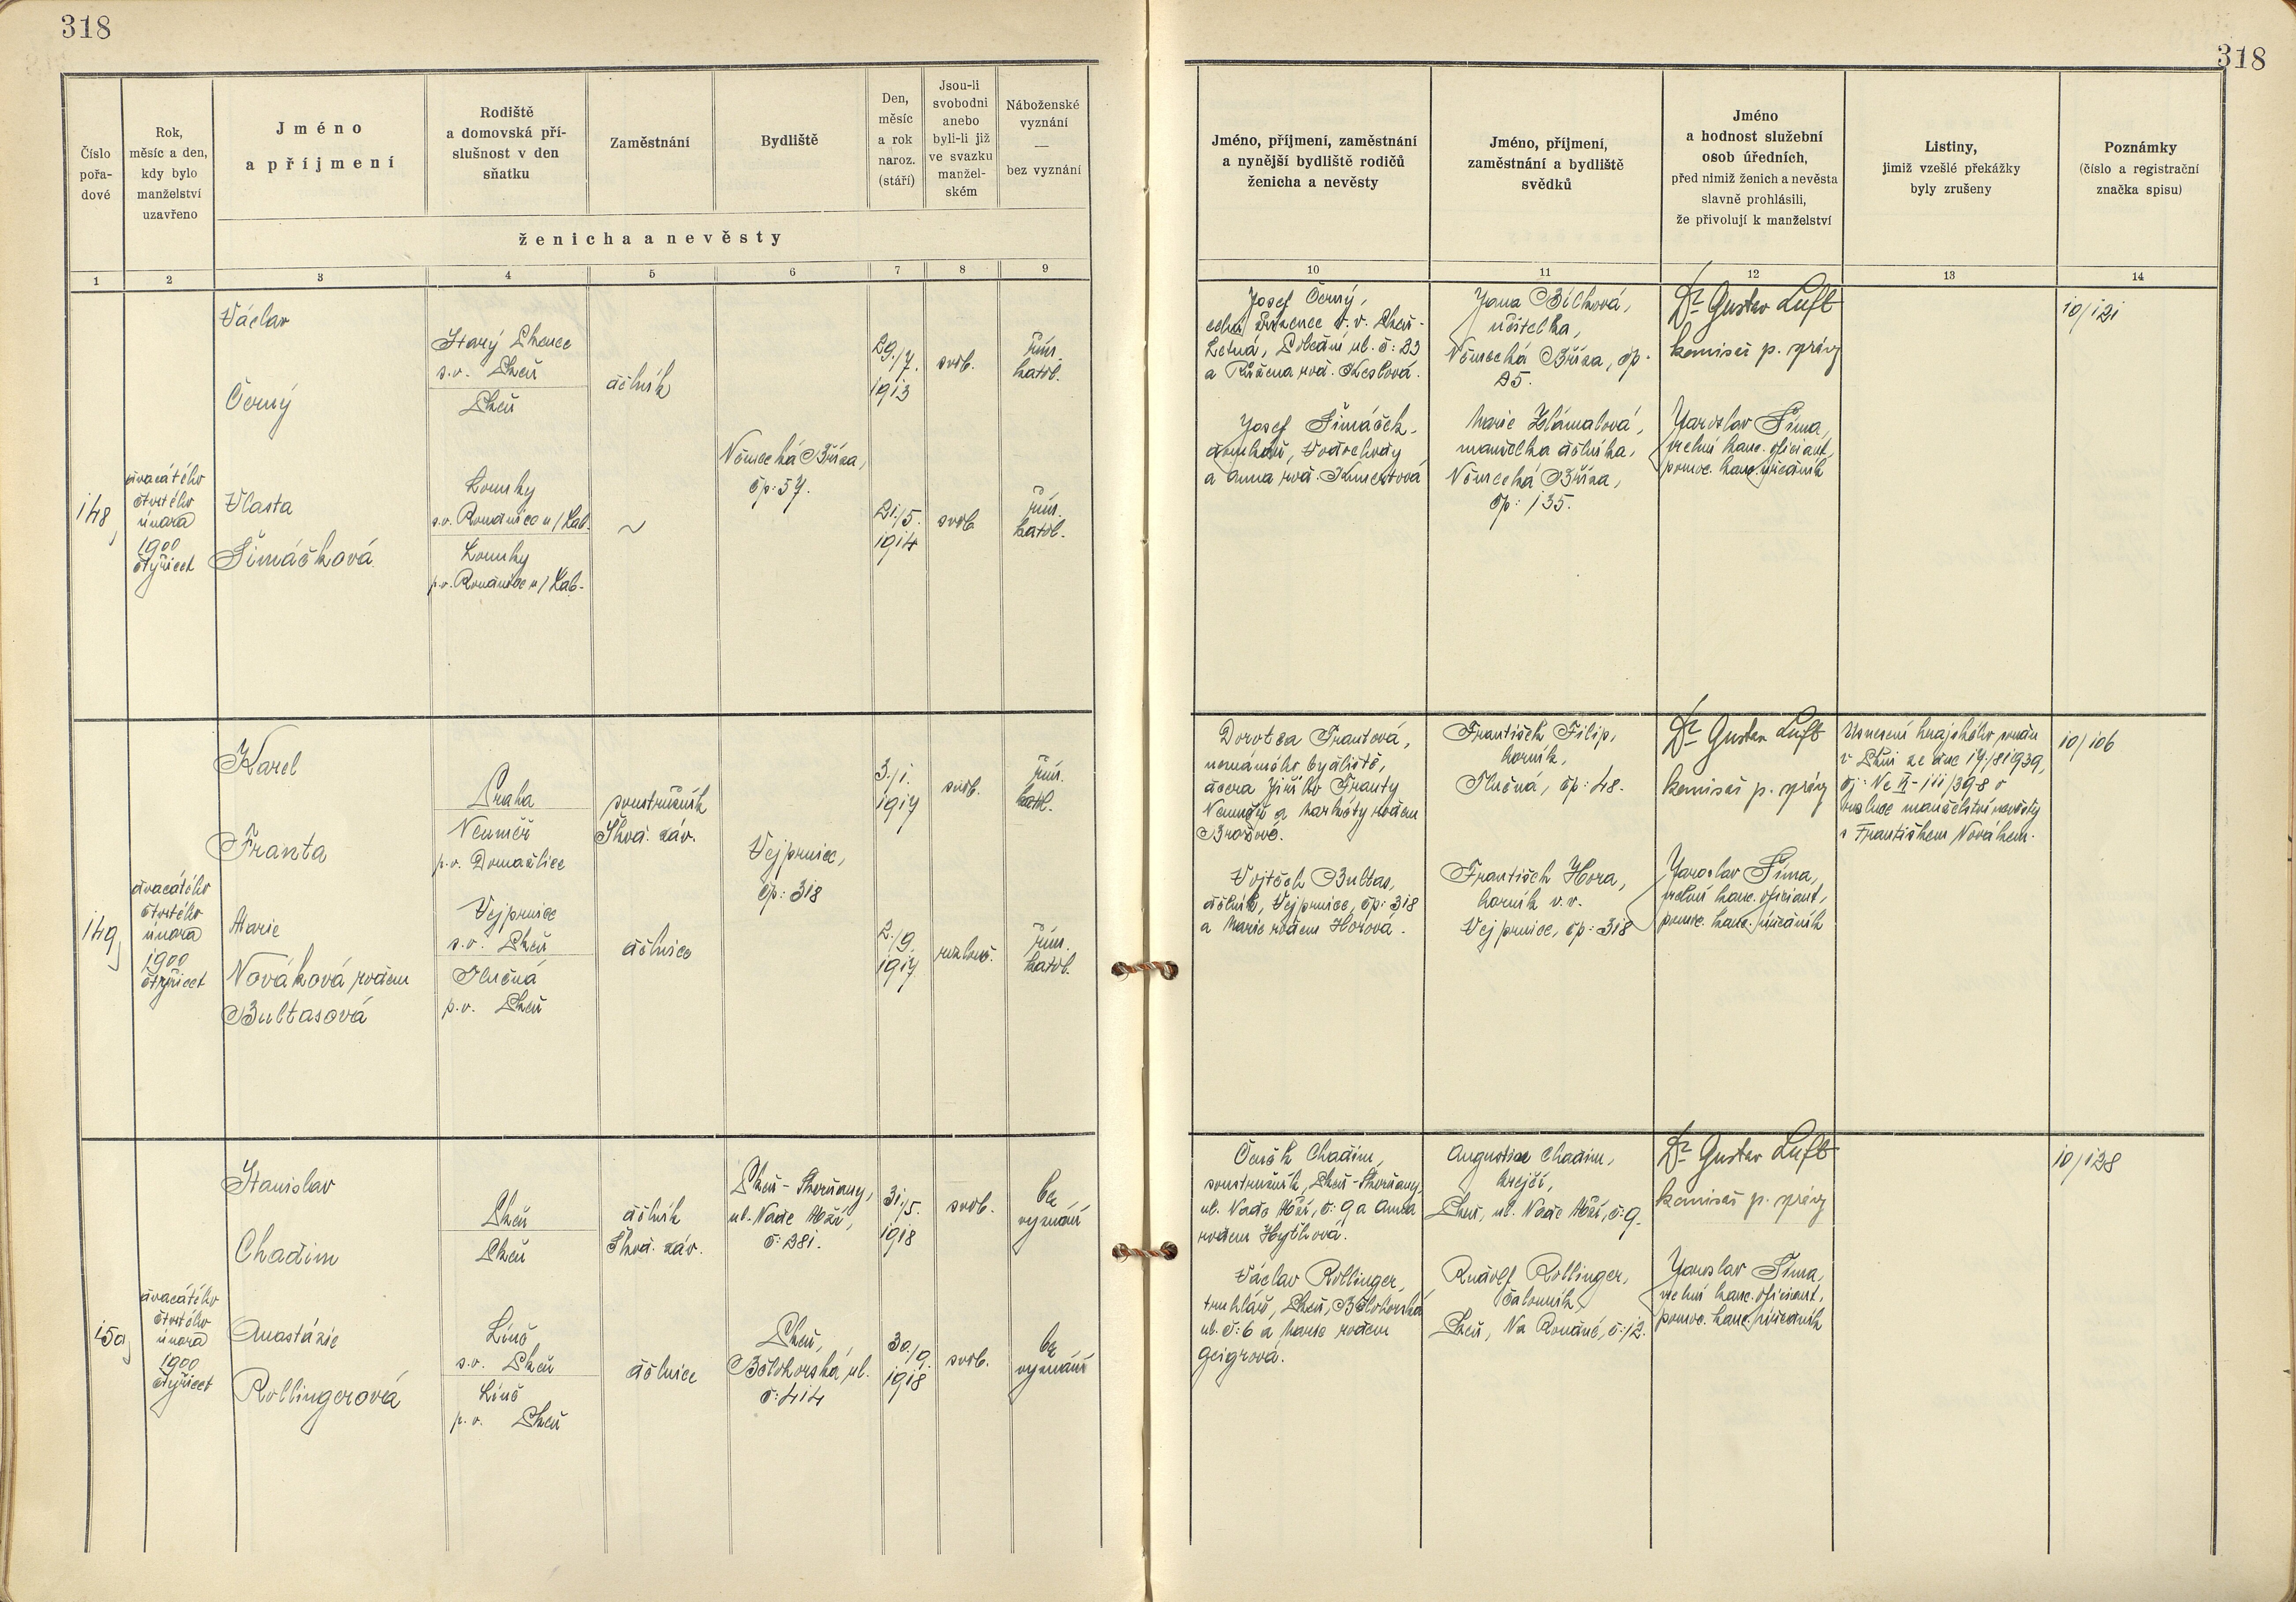 318
318
Číslo
pořa-
dové
Rok,
měsíc a den,
kdy bylo
manželství
uzavřeno
Jméno
a příjmení
Rodiště
a domovská pří-
slušnost v den
sňatku
Zaměstnání
Bydliště
Den,
měsíc
a rok
naroz.
(stáří)
Jsou-li
svobodni
anebo
byli-li již
ve svazku
manžel-
ském
Náboženské
vyznání
—
bez vyznání
ženicha a nevěsty
1 2 3 4 5 6 7 8 9
Jméno, příjmení, zaměstnání
a nynější bydliště rodičů
ženicha a nevěsty
Jméno, příjmení,
zaměstnání a bydliště
svědků
Jméno
a hodnost služební
osob úředních,
před nimiž ženich a nevěsta
slavně prohlásili,
že přivolují k manželství
Listiny,
jimiž vzešlé překážky
byly zrušeny
Poznámky
(číslo a registrační
značka spisu)
10 11 12 13 14
148
dvacátého
čtvrtého
února
1900
čtyřicet
Václav
Černý
Starý Plzenec
s.o. Plzeň
Plzeň
dělník
29./7.
1913
svob.
řím.
katol.
Německá Bříza,
čp: 57.
Vlasta
Šimáčková
Loumky
s.o. Roudnice n/Lab.
Loumky
p.o. Roudnice n/Lab.
~
21./5.
1914
svob.
řím.
katol.
Josef Černý,
Letná, ul. č: 23
a Růžena roz.
Josef Šimáček,
domkář, Vodochody
a Anna roz. Kmentová
Jana Bílková,
učitelka,
Německá Bříza, čp.
25.
Marie
manželka dělníka,
Německá Bříza,
čp: 135.
Dr Gustav Luft
komisař p. správy
Jaroslav Šíma,
vrchní kanc. oficiant,
pomoc. kanc. úředník
10/121
149
dvacátého
čtvrtého
února
1900
čtyřicet
Karel
Franta
Praha
Neuměř
p.o. Domažlice
soustružník
Škod. záv.
Vejprnice,
čp: 318
3./1.
1917
svob.
řím.
katol.
Marie
Nováková rodem
Bultasová
Vejprnice
s.o. Plzeň
Tlučná
p.o. Plzeň
dělnice
2./9.
1917
rozluč.
řím.
katol.
Dorotea Frantová,
neznámého bydliště,
dcera Jiřího Franty
Neuměř a Markéty rodem
Vojtěch Bultas,
dělník, Vejprnice, čp: 318
a Marie rodem Horová.
František Filip,
horník,
Tlučná, čp: 48.
František Hora,
horník v.v.
Vejprnice, čp: 318
Dr Gustav Luft
komisař p. správy
Jaroslav Šíma,
vrchní kanc. oficiant,
pomoc. kanc. úředník
Usnesení krajského soudu
v Plzni ze dne 19./8 1939,
čj: Nc II-111/39-8 o
rozluce manželství nevěsty
s Františkem Novákem.
10/106
150
dvacátého
čtvrtého
února
1900
čtyřicet
Stanislav
Chadim
Plzeň
Plzeň
dělník
Škod. záv.
Plzeň-Skvrňany,
ul. Nade Mží,
č: 381.
31./5.
1918
svob.
bez
vyznání
Anastázie
Rollingerová
Líně
s.o. Plzeň
Líně
p.o. Plzeň
dělnice
Plzeň,
Bělohorská ul.
č: 414
30./9.
1918
svob.
bez
vyznání
Čeněk Chadim,
soustružník, Plzeň-Skvrňany,
ul. Nade Mží, č: 9 a Anna
rodem
Václav Rollinger,
truhlář, Plzeň, Bělohorská
ul. č: 6 a Marie rodem
Geigrová.
Augustin Chadim,
krejčí,
Plzeň, ul. Nade Mží, č: 9.
Rudolf Rollinger,
čalouník,
Plzeň, Na Roudné, č: 12.
Dr Gustav Luft
komisař p. správy
Jaroslav Šíma,
vrchní kanc. oficiant,
pomoc. kanc. úředník
10/128